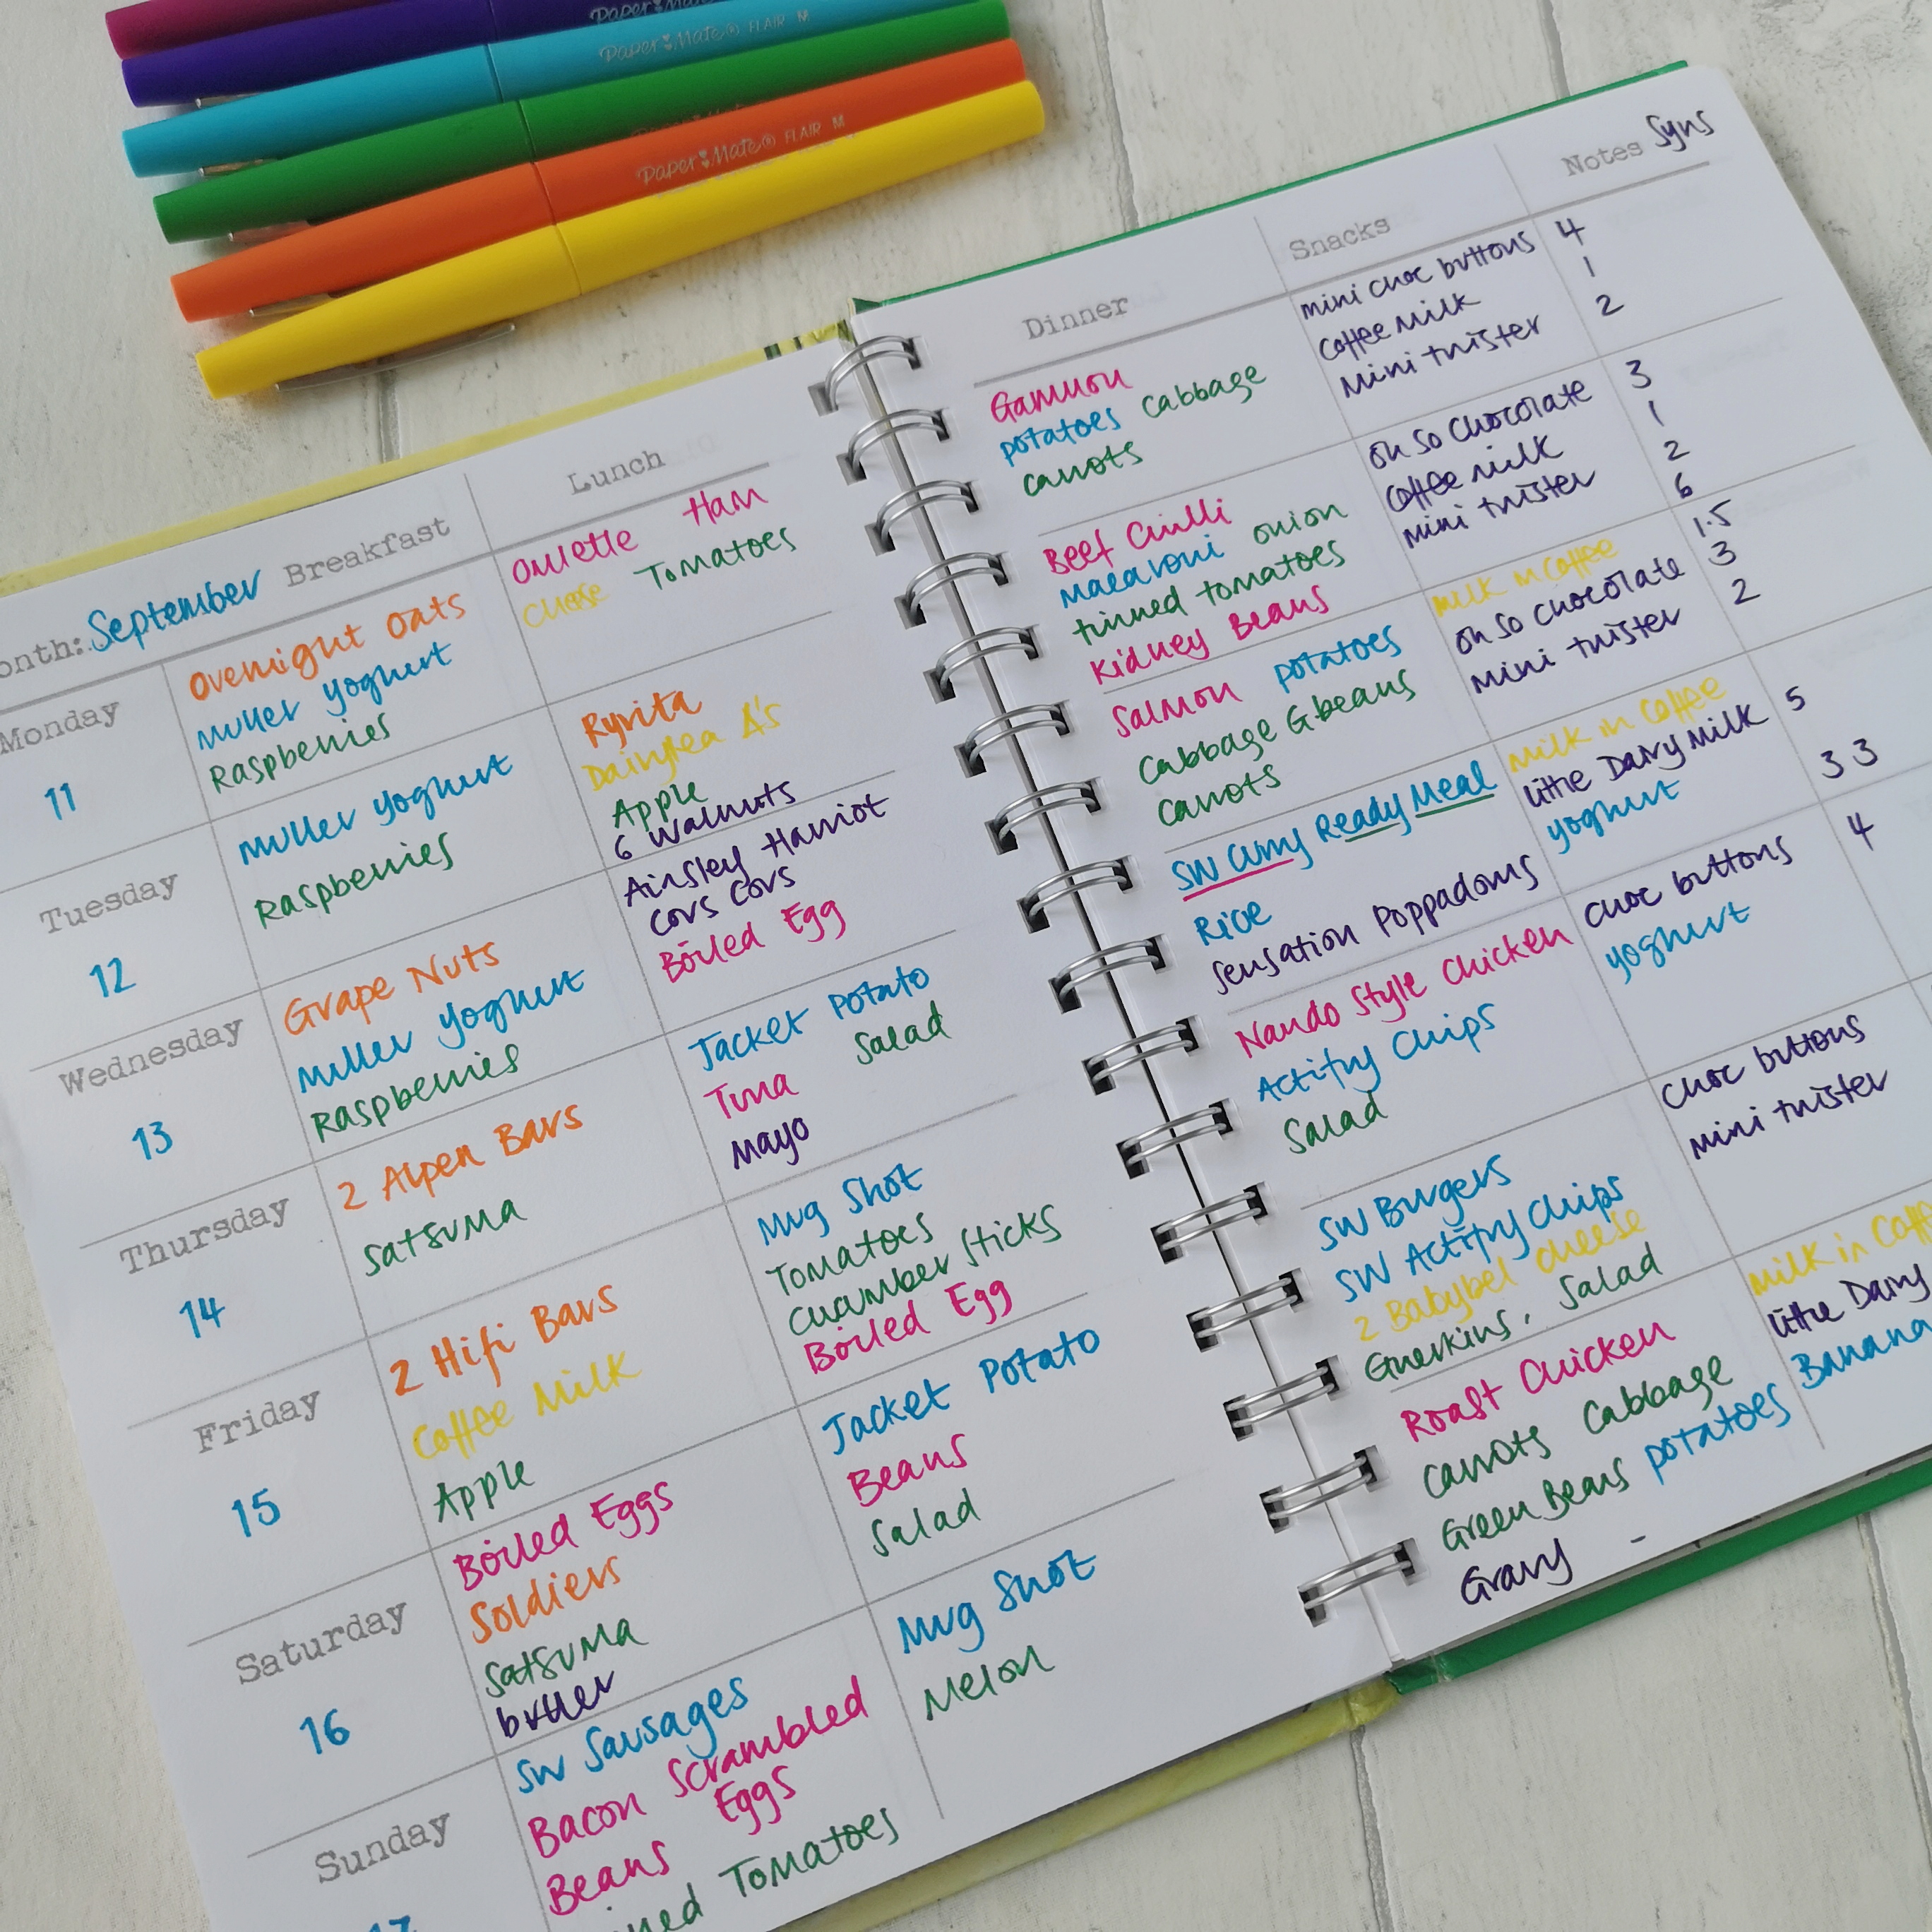 Paper Mate
Paper Mate® FLAIR M
Paper Mate® FLAIR M
onth: September
Breakfast
Lunch
Dinner
Snacks
Notes Syns
Monday
11
Overnight Oats
Muller Yoghurt
Raspberries
Omlette Ham
Cheese Tomatoes
Gammon
potatoes Cabbage
carrots
mini choc buttons 4
coffee milk 1
Mini twister 2
Tuesday
12
Muller Yoghurt
Raspberries
Ryvita
Dairylea A's
Apple
6 Walnuts
Beef Chilli
Macaroni onion
tinned tomatoes
Kidney Beans
oh so chocolate 3
coffee milk 1
mini twister 2
6
Wednesday
13
Grape Nuts
Muller Yoghurt
Raspberries
Ainsley Harriot
Cous Cous
Boiled Egg
Salmon potatoes
Cabbage G.beans
Carrots
milk in coffee
oh so chocolate
mini twister
1.5
3
2
Thursday
14
2 Alpen Bars
Satsuma
Jacket Potato
Tuna Salad
Mayo
SW Curry Ready Meal
Rice
Sensation Poppadoms
Milk in Coffee
little Dairy Milk
yoghurt
5
3 3
Friday
15
2 Hifi Bars
Coffee Milk
Apple
Mug Shot
Tomatoes
Cucumber Sticks
Boiled Egg
Nando Style Chicken
Actifry Chips
Salad
choc buttons
yoghurt
4
Saturday
16
Boiled Eggs
Soldiers
Satsuma
butter
Jacket Potato
Beans
Salad
SW Burgers
SW Actifry Chips
2 Babybel Cheese
Gherkins, Salad
choc buttons
mini twister
Sunday
17
SW Sausages
Bacon Scrambled
Eggs
Beans
ined Tomatoes
Mug Shot
Melon
Roast Chicken
Carrots Cabbage
Green Beans potatoes
Gravy -
Milk in Coff
little Dairy
Banana